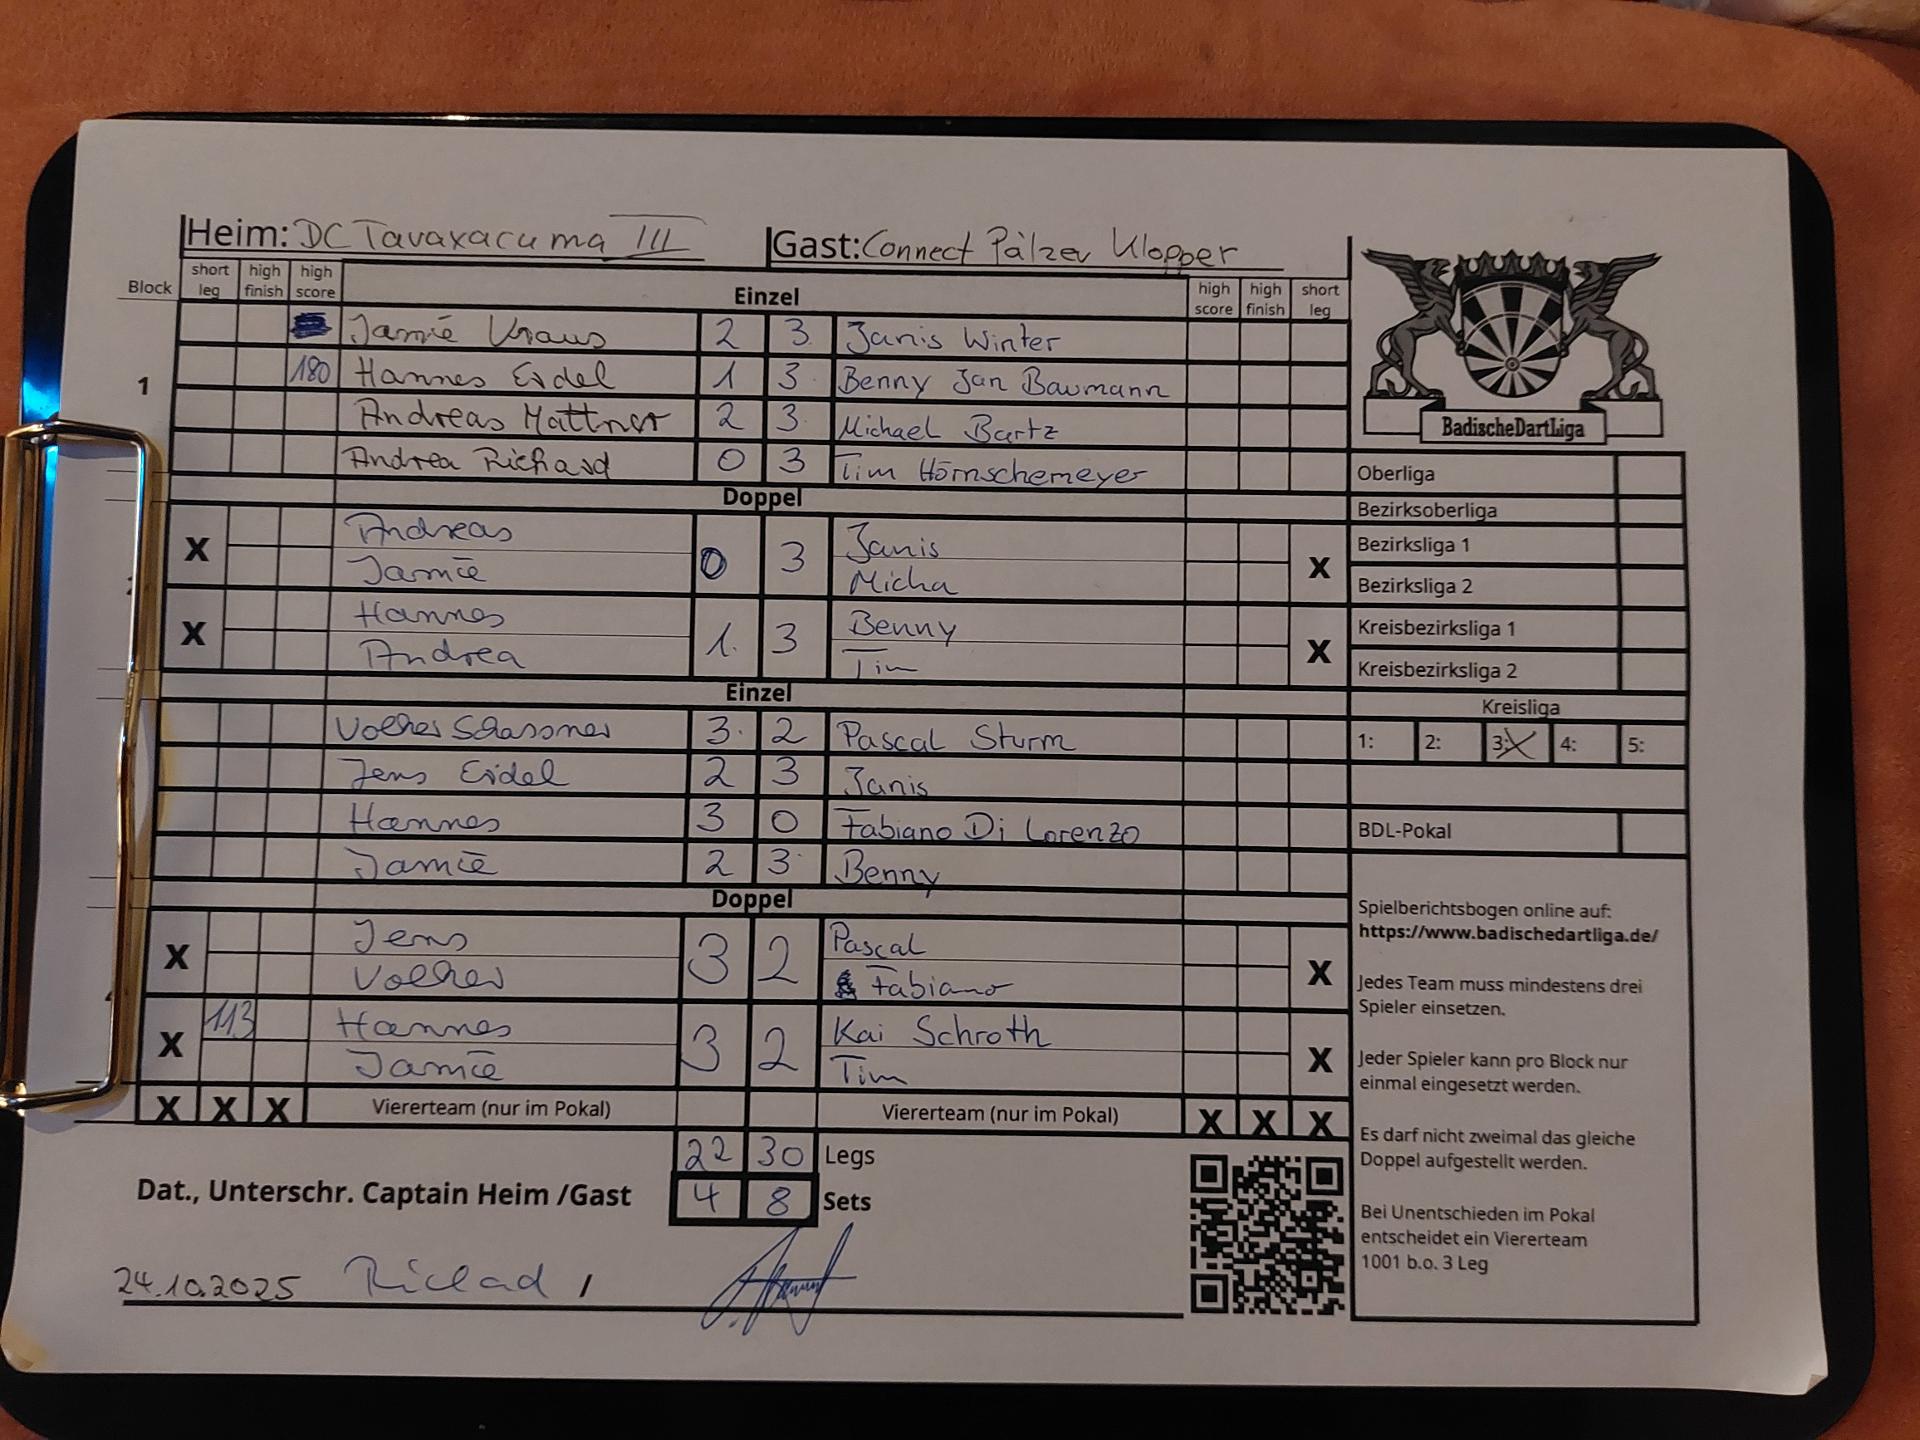 Heim: DC Tavaxacuma III Gast: Connect Pälzer Klopper
Block short leg high finish high score Einzel high score high finish short leg
Jamie Kraus 2 3 Janis Winter
1 180 Hannes Erdel 1 3 Benny Jan Baumann
Andreas Mattner 2 3 Michael Bartz
Andrea Richard 0 3 Tim Hörnschemeyer
Doppel
X Andreas 0 3 Janis X
Jamie Micha
X Hannes 1 3 Benny X
Andrea Tim
Einzel
Volker Schassner 3 2 Pascal Sturm
Jens Erdel 2 3 Janis
Hannes 3 0 Fabiano Di Lorenzo
Jamie 2 3 Benny
Doppel
X Jens 3 2 Pascal X
Volker Fabiano
X 113 Hannes 3 2 Kai Schroth X
Jamie Tim
X X X Viererteam (nur im Pokal) Viererteam (nur im Pokal) X X X
22 30 Legs
Dat., Unterschr. Captain Heim /Gast 4 8 Sets
24.10.2025 Richard /
BadischeDartLiga
Oberliga
Bezirksoberliga
Bezirksliga 1
Bezirksliga 2
Kreisbezirksliga 1
Kreisbezirksliga 2
Kreisliga
1: 2: 3: X 4: 5:
BDL-Pokal
Spielberichtsbogen online auf:
https://www.badischedartliga.de/
Jedes Team muss mindestens drei
Spieler einsetzen.
Jeder Spieler kann pro Block nur
einmal eingesetzt werden.
Es darf nicht zweimal das gleiche
Doppel aufgestellt werden.
Bei Unentschieden im Pokal
entscheidet ein Viererteam
1001 b.o. 3 Leg